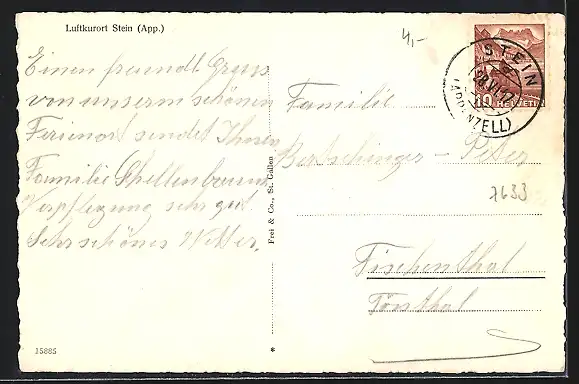 Luftkurort Stein (App.)
4,-
Einen freundl. Gruss
von unserm schönen
Ferienort sendet Ihnen
Familie Schellenbaum
Verpflegung sehr gut.
Sehr schönes Wetter.
Frei & Co., St. Gallen
15885
STEIN
(APPENZELL)
10 HELVETIA
Familie
Bertschinger - Peter
7633
Fischenthal
Tössthal